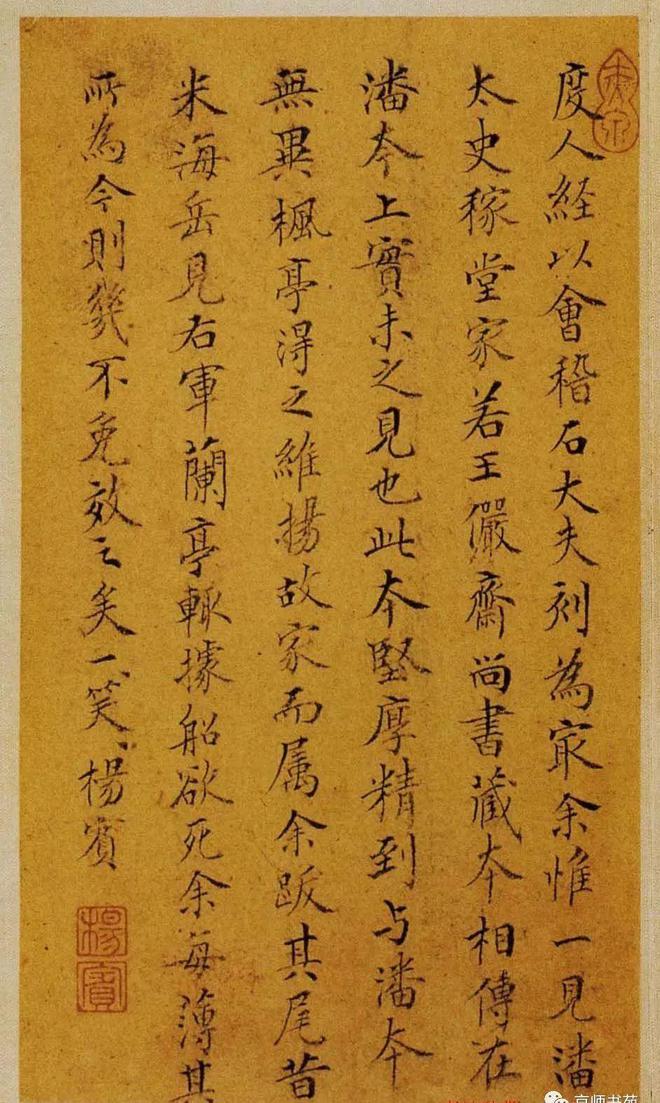 度人経以會稽石大夫刻為冣余惟一見潘
太史稼堂家若王儼齋尚書藏夲相傳在
潘夲上實未之見也此夲堅厚精到与潘夲
無異楓亭淂之維揚故家而属余跋其尾昔
米海岳見右軍蘭亭輙據船欲死余每薄其
所為今則幾不免效之矣一笑楊賓
楊賓
京师书苑